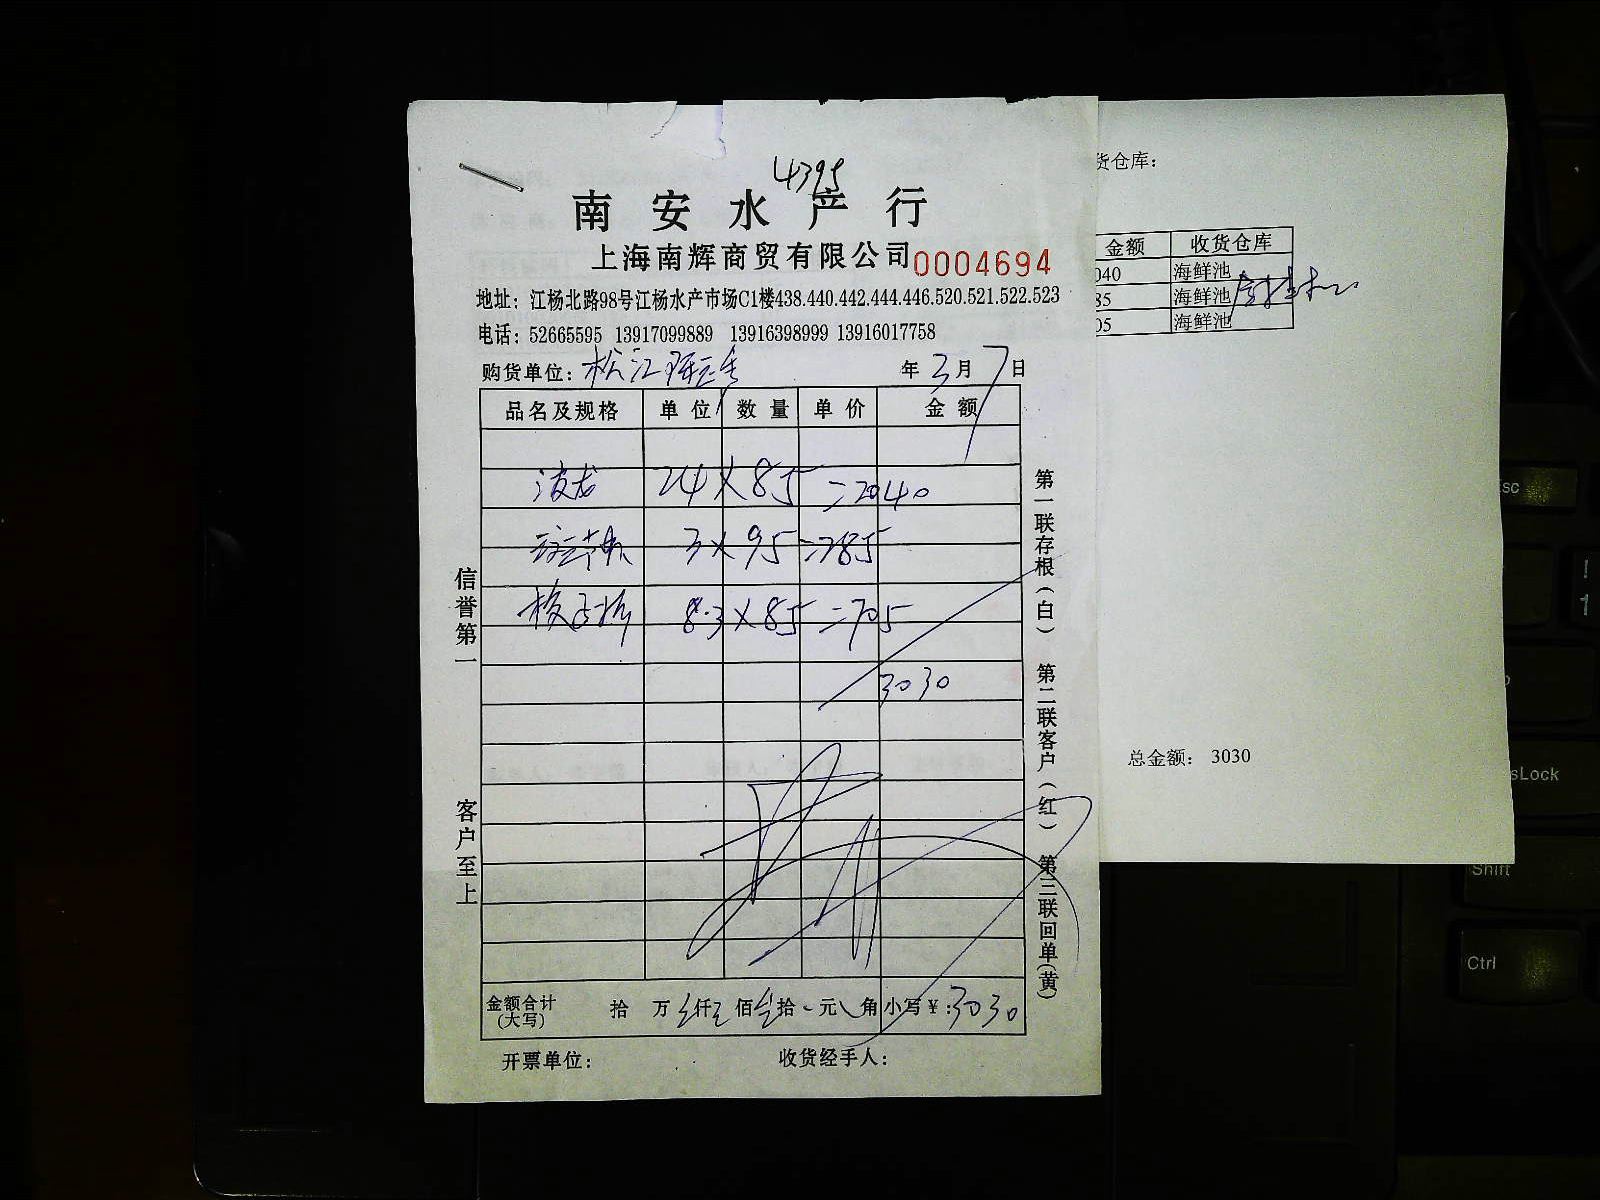 4395
南安水产行
上海南辉商贸有限公司 0004694
地址：江杨北路98号江杨水产市场C1楼438.440.442.444.446.520.521.522.523
电话：52665595 13917099889 13916398999 13916017758
购货单位：松江 年3月7日
品名及规格 单位 数量 单价 金额
波龙 24×85=2040
3×95=285
8.3×85=705
3030
金额合计(大写) 拾 万 仟 佰 拾 元 角 小写￥:3030
开票单位： 收货经手人：
信誉第一
客户至上
第一联存根(白) 第二联客户(红) 第三联回单(黄)
货仓库：
金额 收货仓库
040 海鲜池
85 海鲜池
05 海鲜池
总金额： 3030
Esc
sLock
Shift
Ctrl
!
1